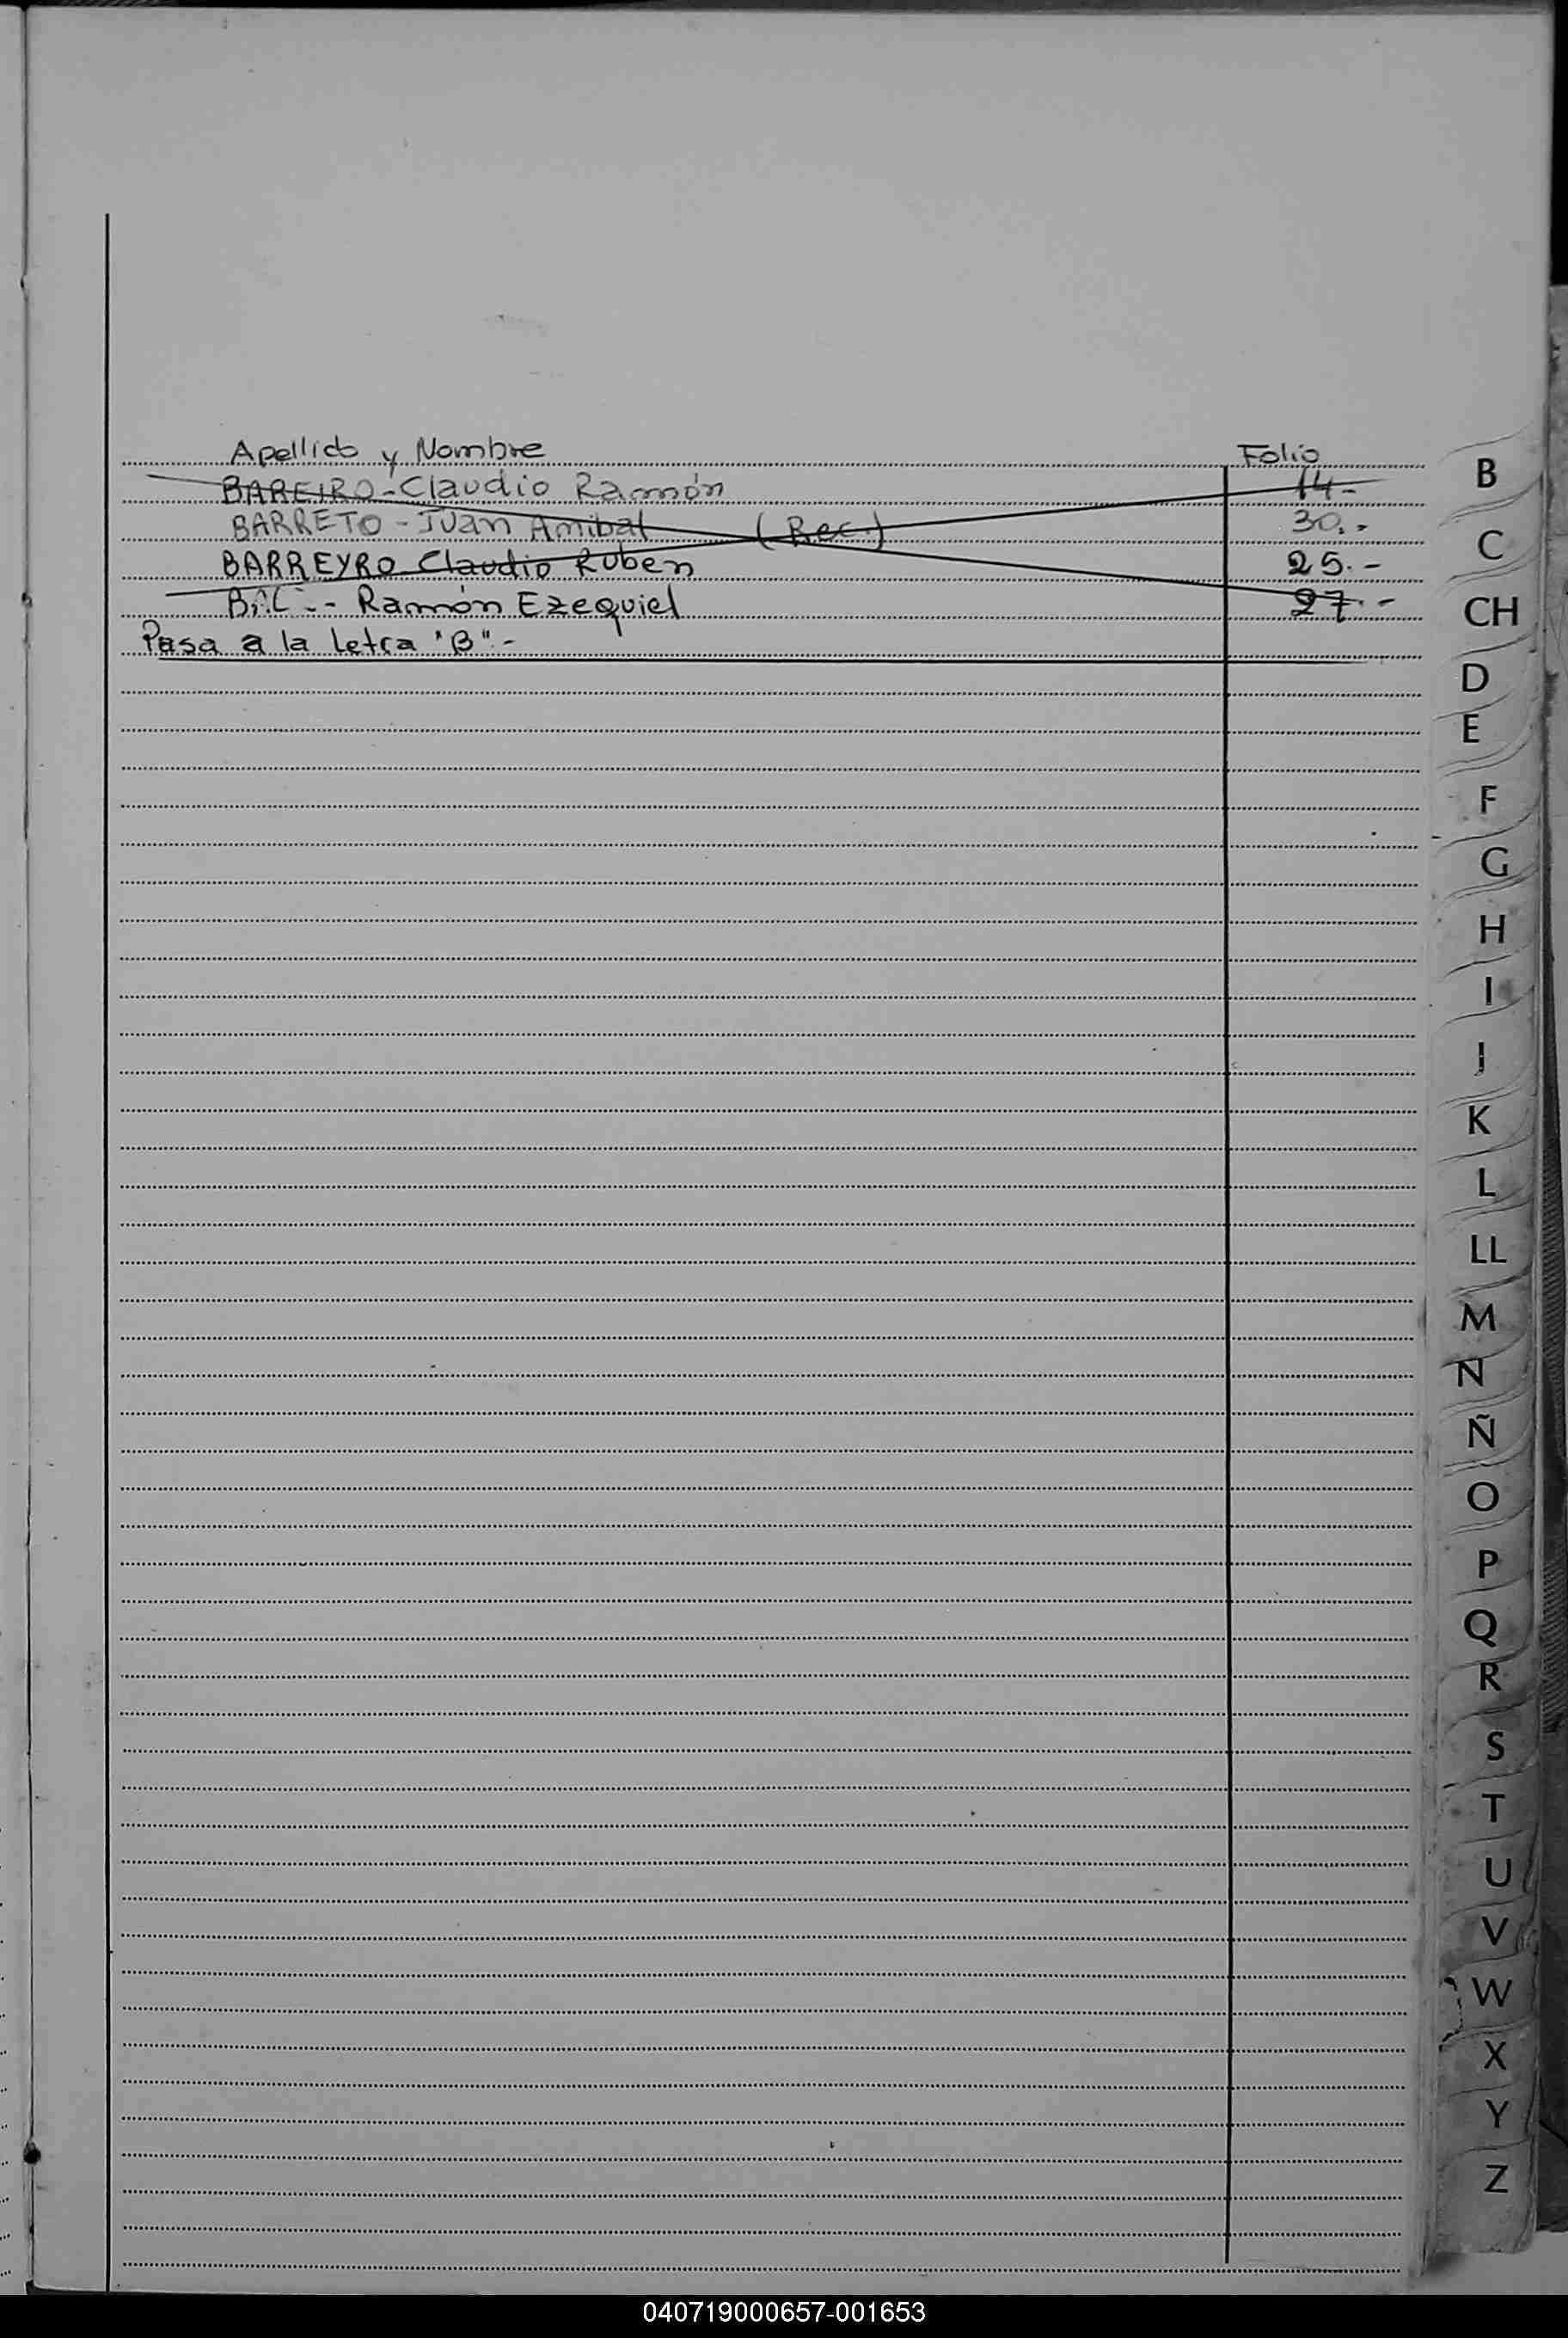 Apellido y Nombre Folio
BAREIRO - Claudio Ramón 14.-
BARRETO - Juan Anibal (Rec.) 30.-
BARREYRO Claudio Ruben 25.-
Ramón Ezequiel 27.-
Pasa a la letra "B".-
B
C
CH
D
E
F
G
H
I
J
K
L
LL
M
N
Ñ
O
P
Q
R
S
T
U
V
W
X
Y
Z
040719000657-001653